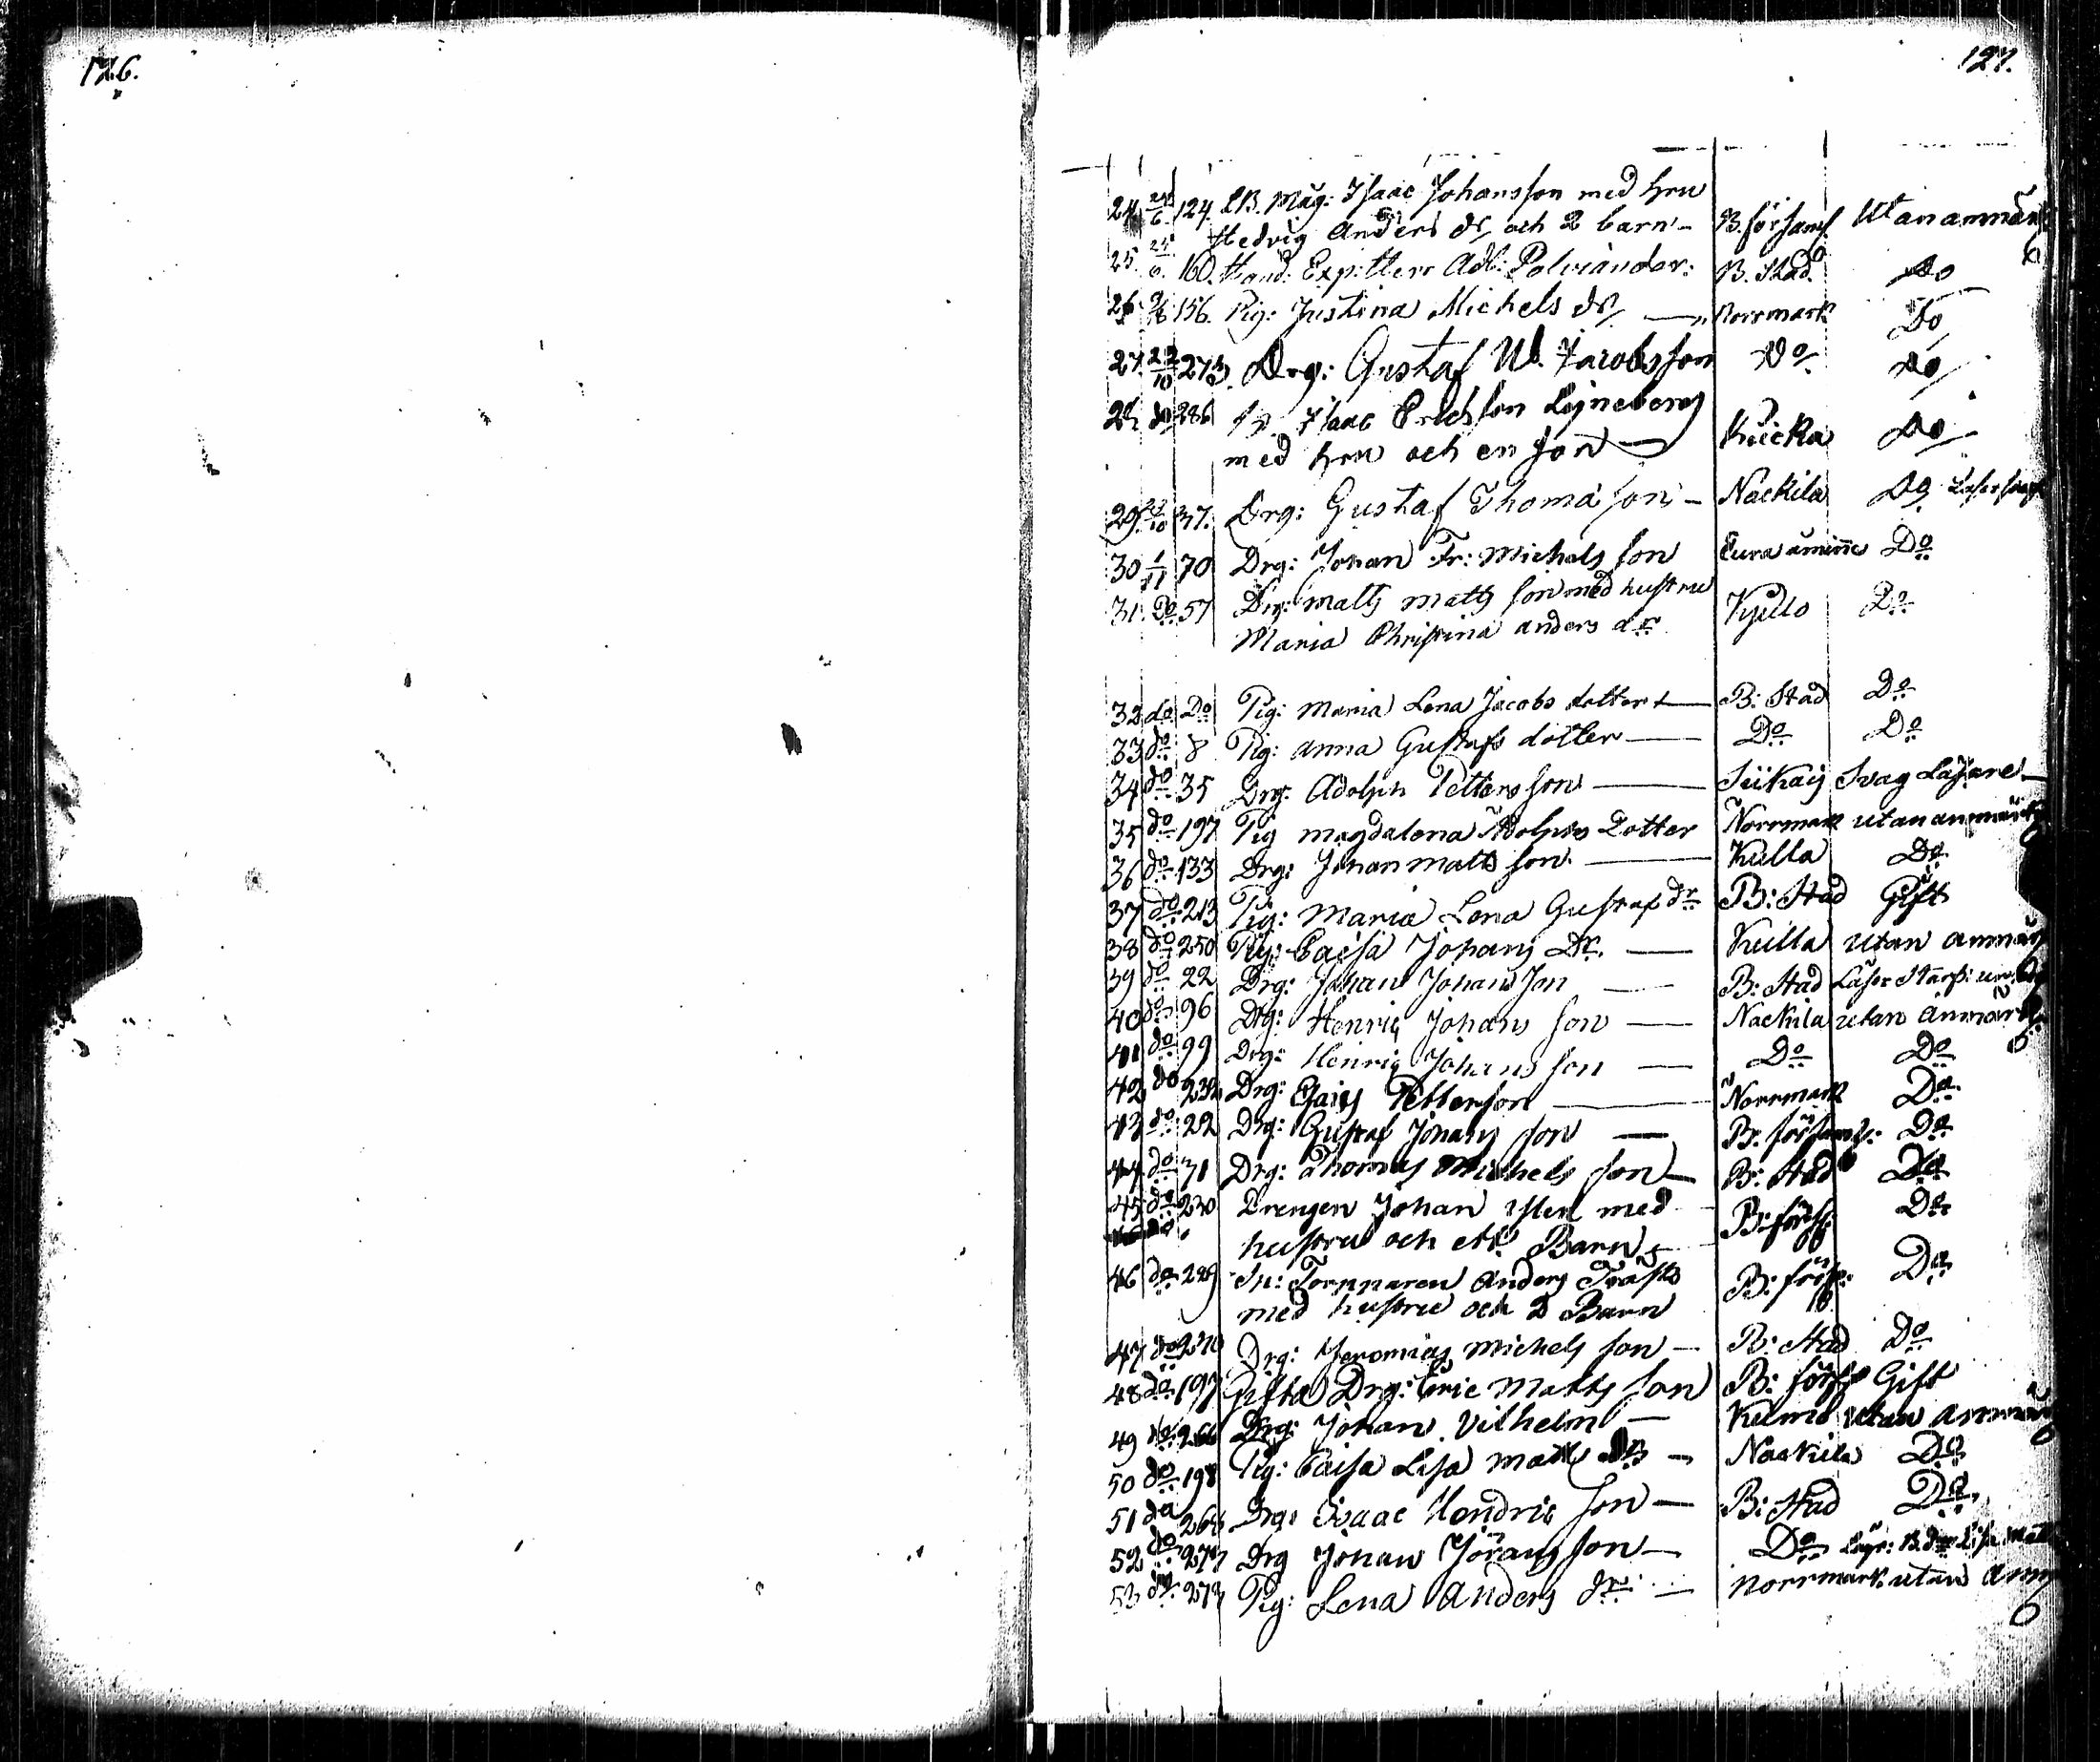 126.
127.
24. 24/6 124. Mag: Isaac Johansson med hru B. församl. Utan anmärk
Hedvig Anders dr och 2 barn -
25. 25/6 160. Hand: Exp: Herr Adl: Polviander: B. Stad. Do
26 156. Pig: Justina Michels dr Norrmark Do
27. 22/10 273. Drg: Gustaf W. Jacobsson Do Do
28 do 286 Isaac Ericsson
med hru och en son Do
29. 37. Drg: Gustaf Thomasson - Nackila Do
30 1/11 70 Drg: Johan Fr: Michelsson Eura åminne Do
31. Do 57 Drg: Matts Mattsson med hustru Kjulo Do
Maria Christina Anders dr
32 do Do Pig: Maria Lena Jacobs dotter B: Stad Do
33 do 8 Pig: Anna Gustafs dotter Do Do
34 do 35 Drg: Adolph Pettersson Svag Läsare
35 do 197 Pig Magdalena Adolphs Dotter Norrmark utan anmärk
36 do 133 Drg: Johan Mattsson Kulla Do
37 do 213 Pig: Maria Lena Gustaf dr B: Stad Gift
38 do 250 Pig: Caisa Johans Dr. Kulla utan anmärk
39 do 22 Drg: Johan Johansson B: Stad Läser
40 do 96 Drg: Henric Johansson Nackila utan anmärk
41 do 99 Drg: Henric Johansson Do Do
42 do 232 Drg: Pettersson Norrmark Do
43 do 22 Drg: Gustaf Johansson B: församl: Do
44 do 71 Drg: Thomas Michelsson B: Stad Do
45 do 230 Drengen Johan med B: förs: Do
hustru och ett Barn
46 do 229 Torpparen Anders B: förs: Do
med hustru och 2 Barn
47 do 270 Drg: Jeremias Michelsson - B: Stad Do
48 do 197 Gifta Drg: Eric Mattsson B: förs: Gift
49 do 266 Drg: Johan Vilhelm - Kumo utan anmärk
50 do 198 Pig: Caisa Lisa Matts dr - Nackila Do
51 do 268 Drg: Isaac Hendricson - B: Stad Do
52 do 277 Drg Johan Göransson - Do
53 do 273 Pig: Lena Anders dr: - Norrmark utan anm